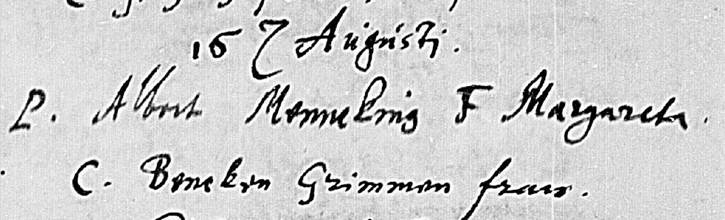 16 7 Augusti.
P. Albert Menneking F Margareta.
C. Beneken Grimmen fraw.